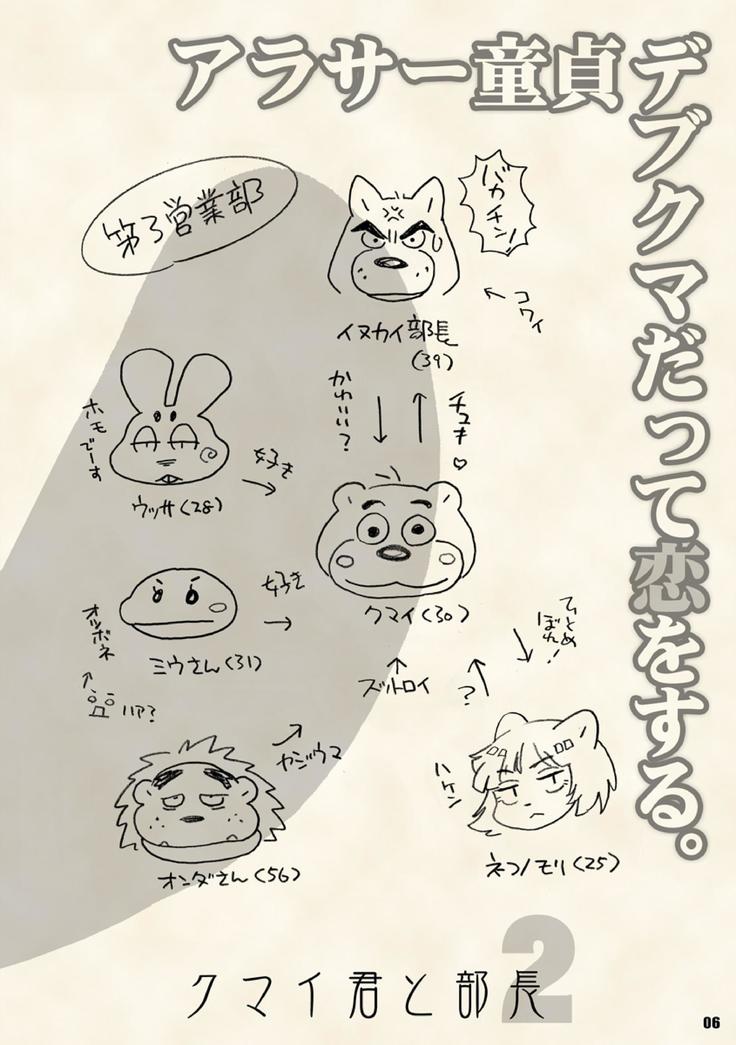 アラサー童貞デブクマだって恋をする。
第3営業部
バカチン!
コワイ
イヌカイ部長
(39)
かわいい?
チュキ♡
ホモでーす
好き
ウッサ(28)
クマイ(30)
好き
オツボネ
ミウさん(31)
ハア?
ひとめぼれ!
?
ヤジウマ
オンダさん(56)
ハケン
ネコノモリ(25)
2
クマイ君と部長
06